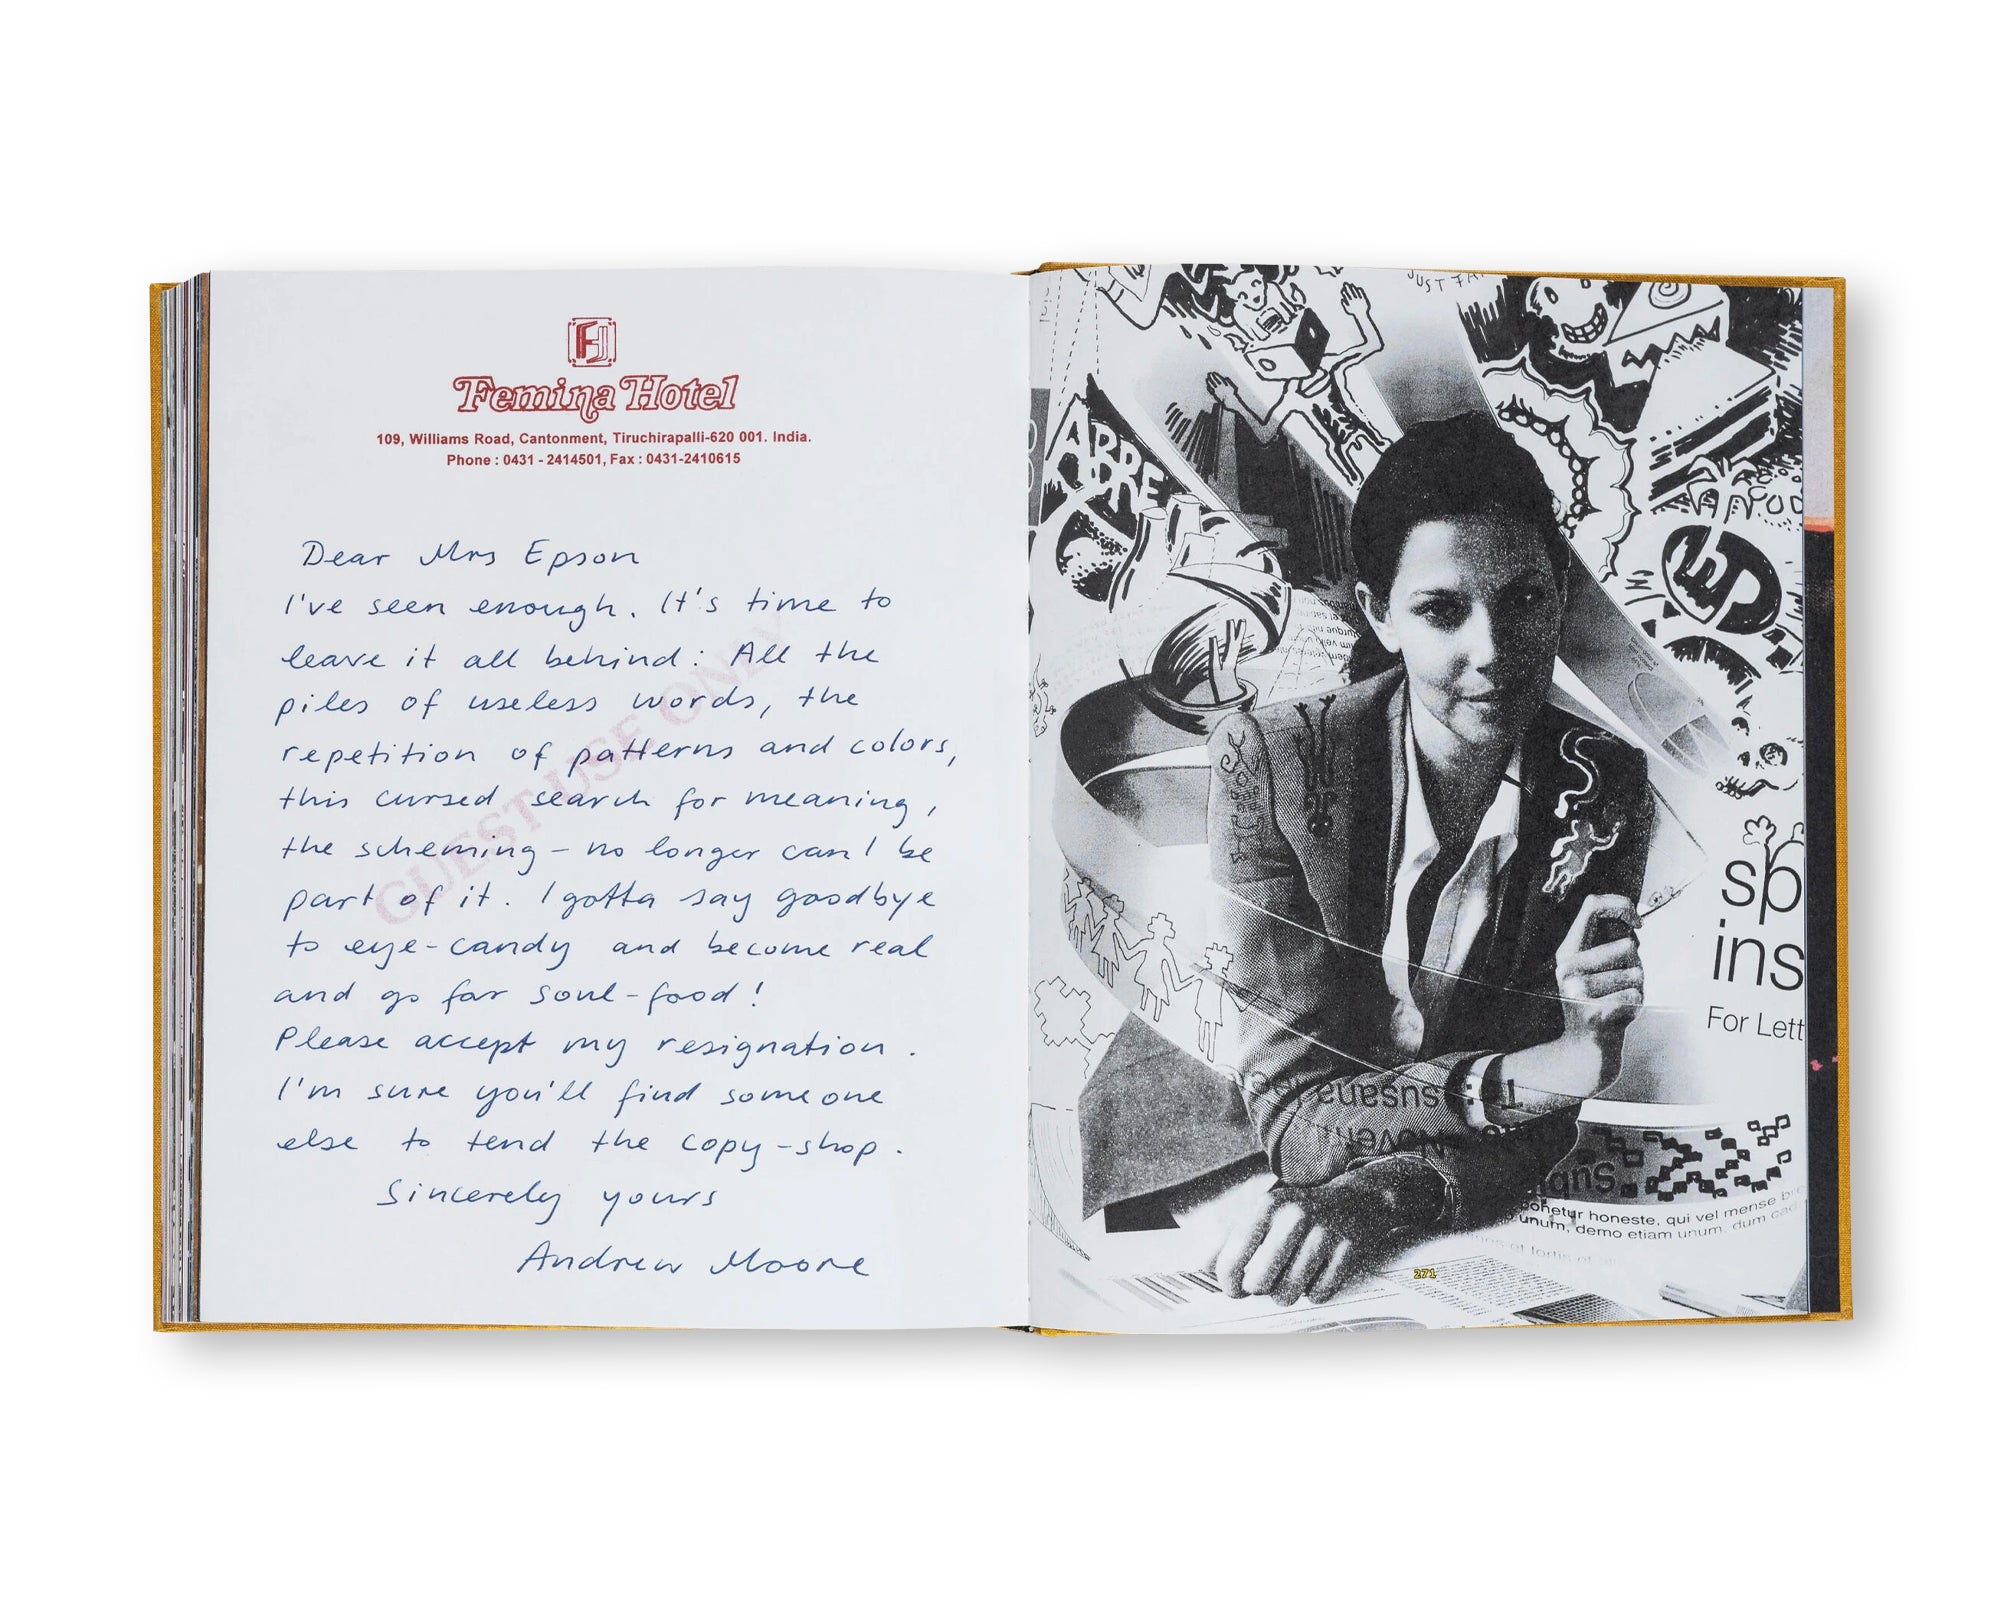 FJ
Femina Hotel
109, Williams Road, Cantonment, Tiruchirapalli-620 001. India.
Phone : 0431 - 2414501, Fax : 0431-2410615
GUEST USE ONLY
Dear Mrs Epson
I've seen enough. It's time to
leave it all behind: All the
piles of useless words, the
repetition of patterns and colors,
this cursed search for meaning,
the scheming – no longer can I be
part of it. I gotta say goodbye
to eye-candy and become real
and go for soul-food!
Please accept my resignation.
I'm sure you'll find someone
else to tend the copy-shop.
Sincerely yours
Andrew Moore
JUST
ABRE
sp
ins
For Lett
susane
qui vel mense
honeste,
unum, demo etiam unum, dum
et fortis et
271